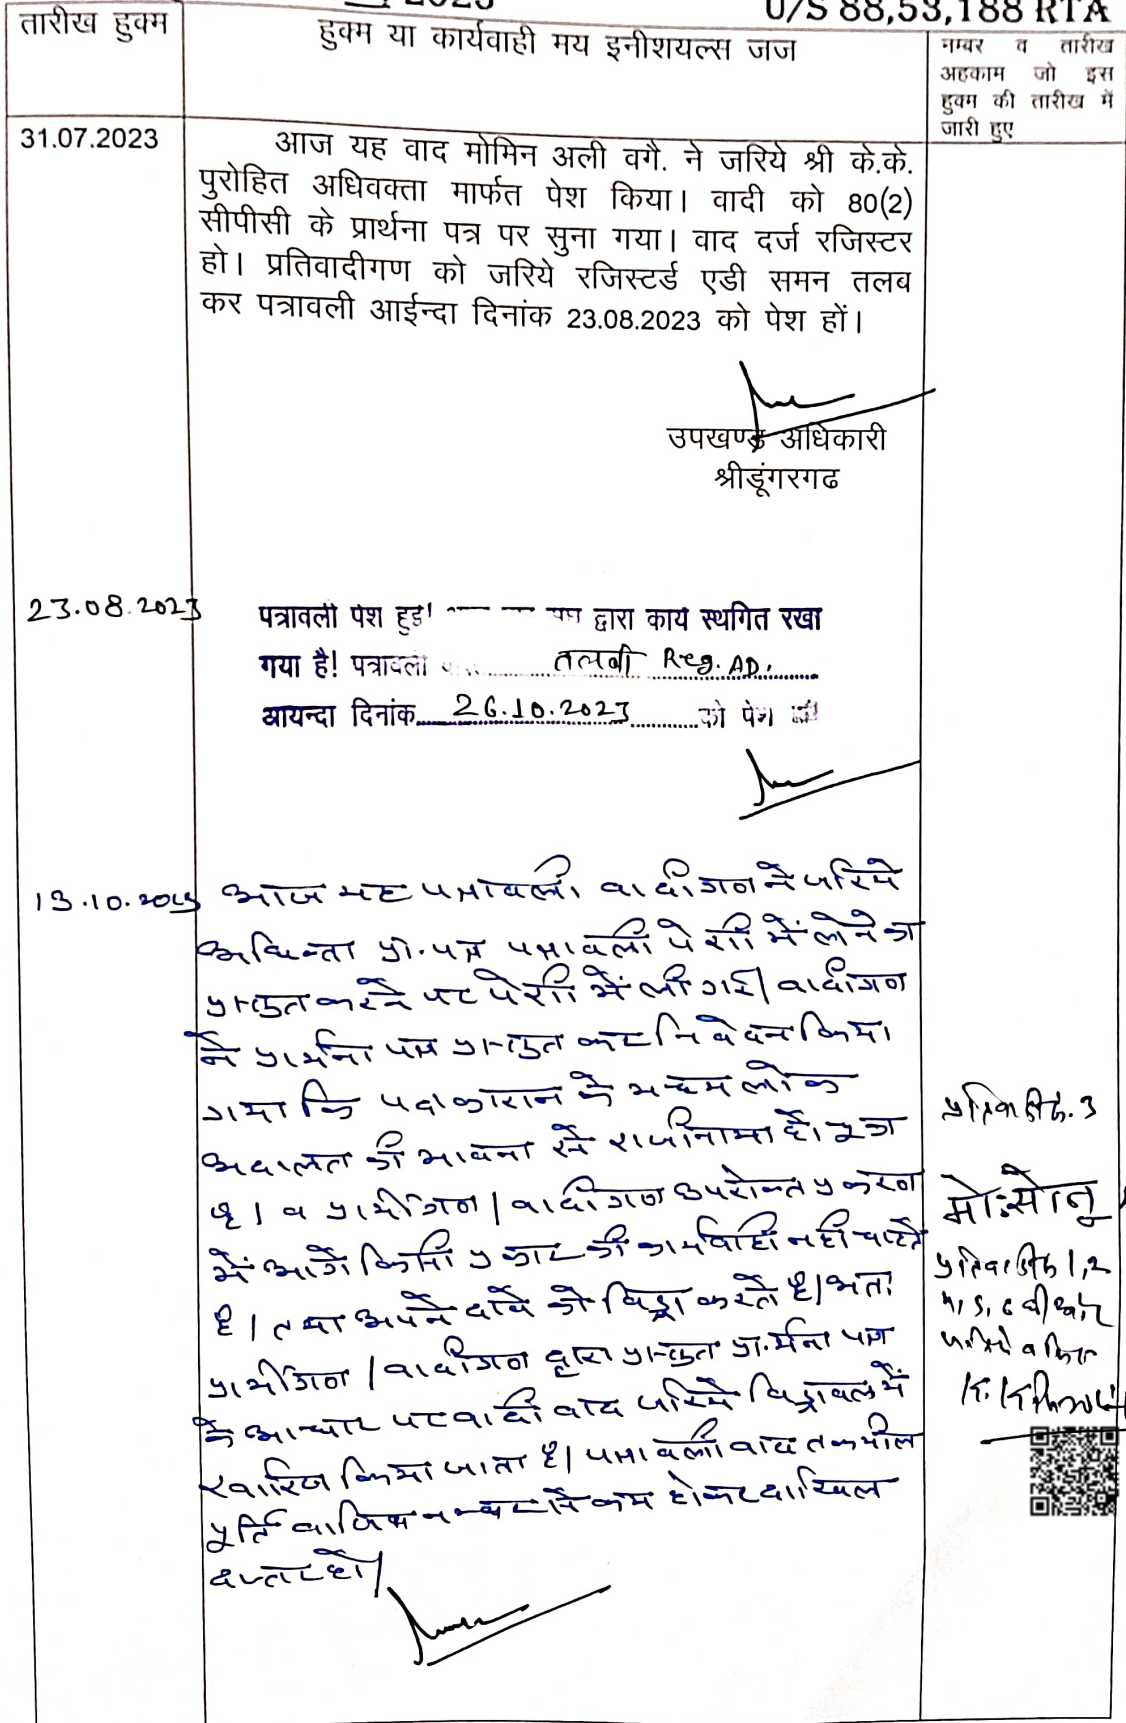 2023
U/S 88,53,188 RTA
तारीख हुक्म
हुक्म या कार्यवाही मय इनीशयल्स जज
नम्बर व तारीख
अहकाम जो इस
हुक्म की तारीख में
जारी हुए
31.07.2023
आज यह वाद मोमिन अली वगै. ने जरिये श्री के.के.
पुरोहित अधिवक्ता मार्फत पेश किया। वादी को 80(2)
सीपीसी के प्रार्थना पत्र पर सुना गया। वाद दर्ज रजिस्टर
हो। प्रतिवादीगण को जरिये रजिस्टर्ड एडी समन तलब
कर पत्रावली आईन्दा दिनांक 23.08.2023 को पेश हों।
उपखण्ड अधिकारी
श्रीडूंगरगढ
23.08.2023
पत्रावली पेश हुई! द्वारा कार्य स्थगित रखा
गया है! पत्रावली तलबी Reg. AD.
आयन्दा दिनांक 26.10.2023 को पेश
13.10.2023 आज यह पत्रावली वादीगण ने जरिये
अधिवक्ता प्रा.पत्र पत्रावली पेशी में लेने का
प्रस्तुत करने पर पेशी में ली गई। वादीगण
ने प्रार्थना पत्र प्रस्तुत कर निवेदन किया
गया कि पक्षकारान के मध्य लोक
अदालत की भावना से राजीनामा हो चुका
है। व प्रार्थीगण/वादीगण उपरोक्त प्रकरण
में आगे किसी प्रकार की कार्यवाही नहीं चाहते
है। तथा अपने दावे को विड्रा करते है। अतः
प्रार्थीगण/वादीगण द्वारा प्रस्तुत प्रार्थना पत्र
के आधार पर वादी वाद जरिये विड्रावल में
खारिज किया जाता है। पत्रावली बाद तकमील
पूर्ति नम्बर से कम होकर दाखिल
दफ्तर हो।
प्रतिवादी क्र. 3
मो:सोनू
प्रतिवादी क्र 1,2